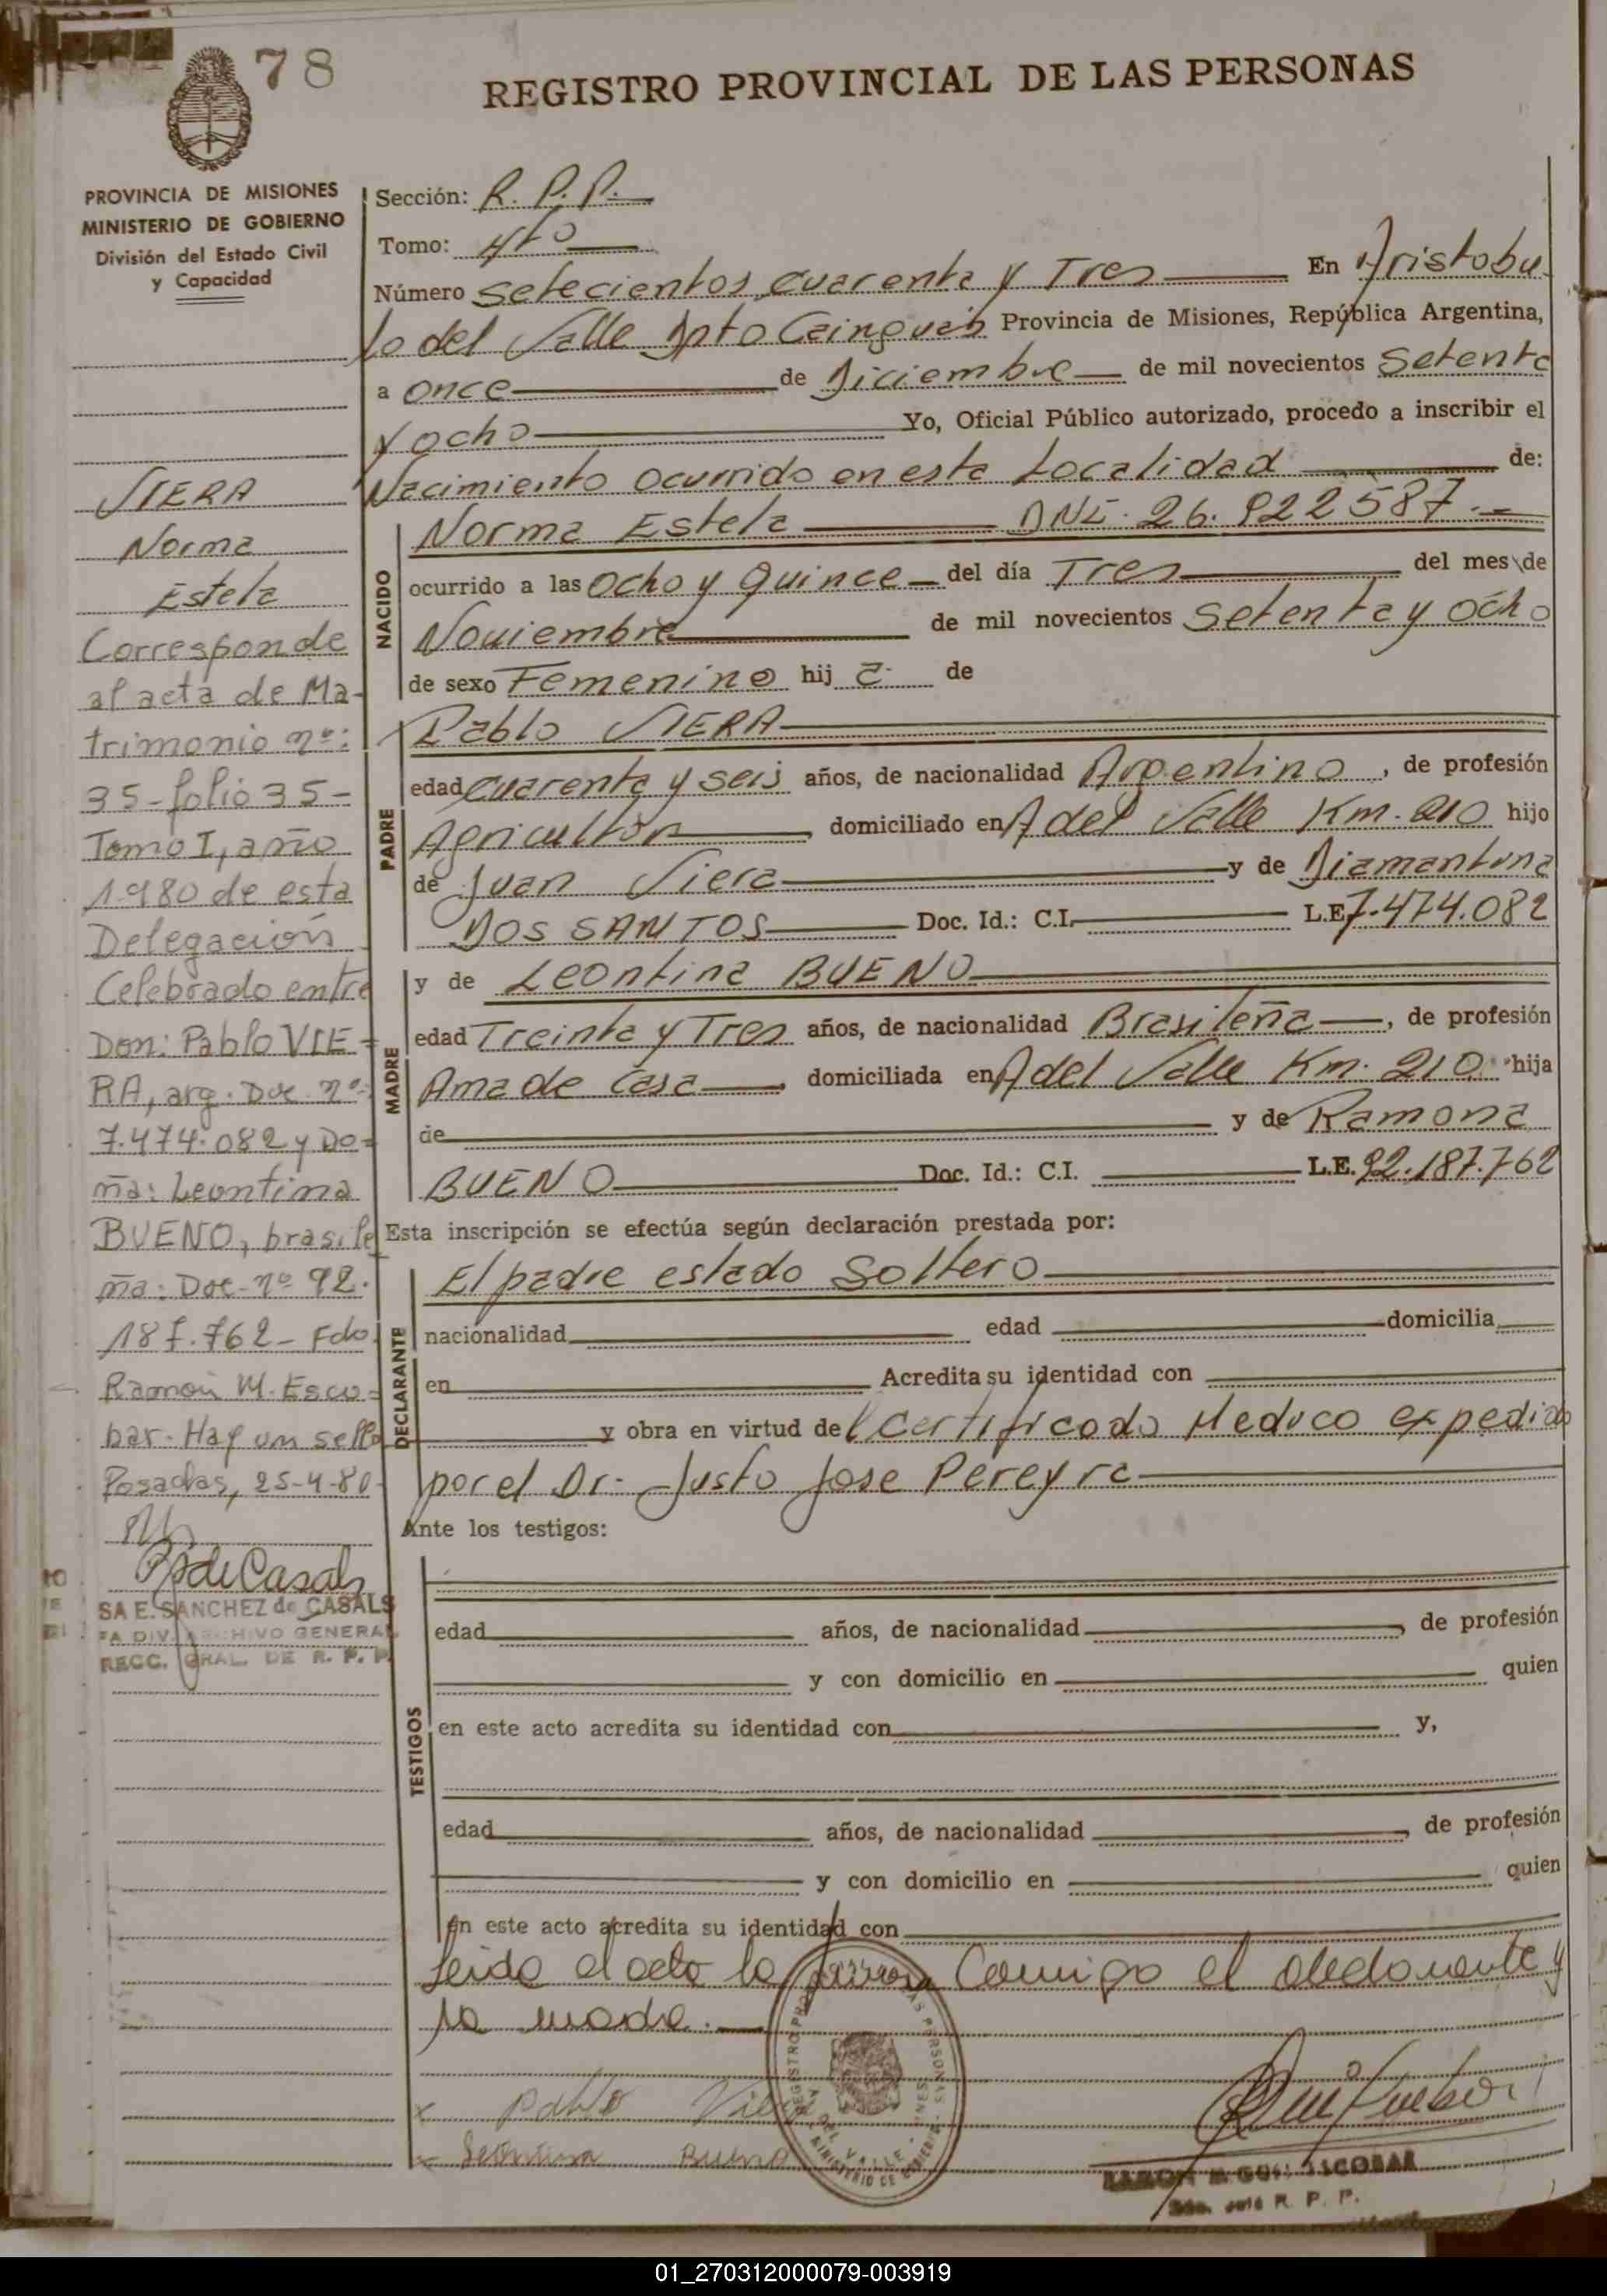 78
REGISTRO PROVINCIAL DE LAS PERSONAS
PROVINCIA DE MISIONES
MINISTERIO DE GOBIERNO
División del Estado Civil
y Capacidad
Sección: R. P. P.
Tomo: 4to
Número setecientos cuarenta y Tres En Aristobu
lo del Valle Dpto Cainguas Provincia de Misiones, República Argentina,
a once de Diciembre de mil novecientos Setenta
y ocho Yo, Oficial Público autorizado, procedo a inscribir el
Nacimiento ocurrido en esta Localidad de:
NACIDO
Norma Estela DNI. 26.822587.-
ocurrido a las Ocho y Quince del día Tres del mes de
Noviembre de mil novecientos Setenta y Ocho
de sexo Femenino hij a de
PADRE
Pablo VIERA
edad Cuarenta y seis años, de nacionalidad Argentino, de profesión
Agricultor domiciliado en A del Valle Km. 210 hijo
de Juan Viera y de Diamantina
DOS SANTOS Doc. Id.: C.I. L.E. 7.474.082
MADRE
y de Leontina BUENO
edad Treinta y Tres años, de nacionalidad Brasileña, de profesión
Ama de Casa domiciliada en A del Valle Km. 210 hija
de y de Ramona
BUENO Doc. Id.: C.I. L.E. 92.187.762
Esta inscripción se efectúa según declaración prestada por:
DECLARANTE
El padre estado Soltero
nacionalidad edad domicilia
en Acredita su identidad con
y obra en virtud del Certificado Medico expedido
por el Dr. Justo Jose Pereyra
Ante los testigos:
TESTIGOS
edad años, de nacionalidad de profesión
y con domicilio en quien
en este acto acredita su identidad con y,
edad años, de nacionalidad, de profesión
y con domicilio en quien
en este acto acredita su identidad con
Leida el acta la Conmigo el declarante y
la madre.
x Pablo Viera
x Leontina Bueno
VIERA
Norma
Estela
Corresponde
al acta de Ma-
trimonio nº:
35-folio 35-
Tomo I, año
1980 de esta
Delegación
Celebrado entre
Don: Pablo VIE=
RA, arg. Doc. nº:
7.474.082 y Do=
ña: Leontina
BUENO, brasile
ña: Doc. nº 92.
187.762- Fdo
Ramón M. Esco=
bar. Hay un sello
Posadas, 25-4-80
SA E. SANCHEZ de CASALS
FA DIV. ARCHIVO GENERAL
RECC. GRAL. DE R. P. P.
ESCOBAR
R. P. P.
01_270312000079-003919